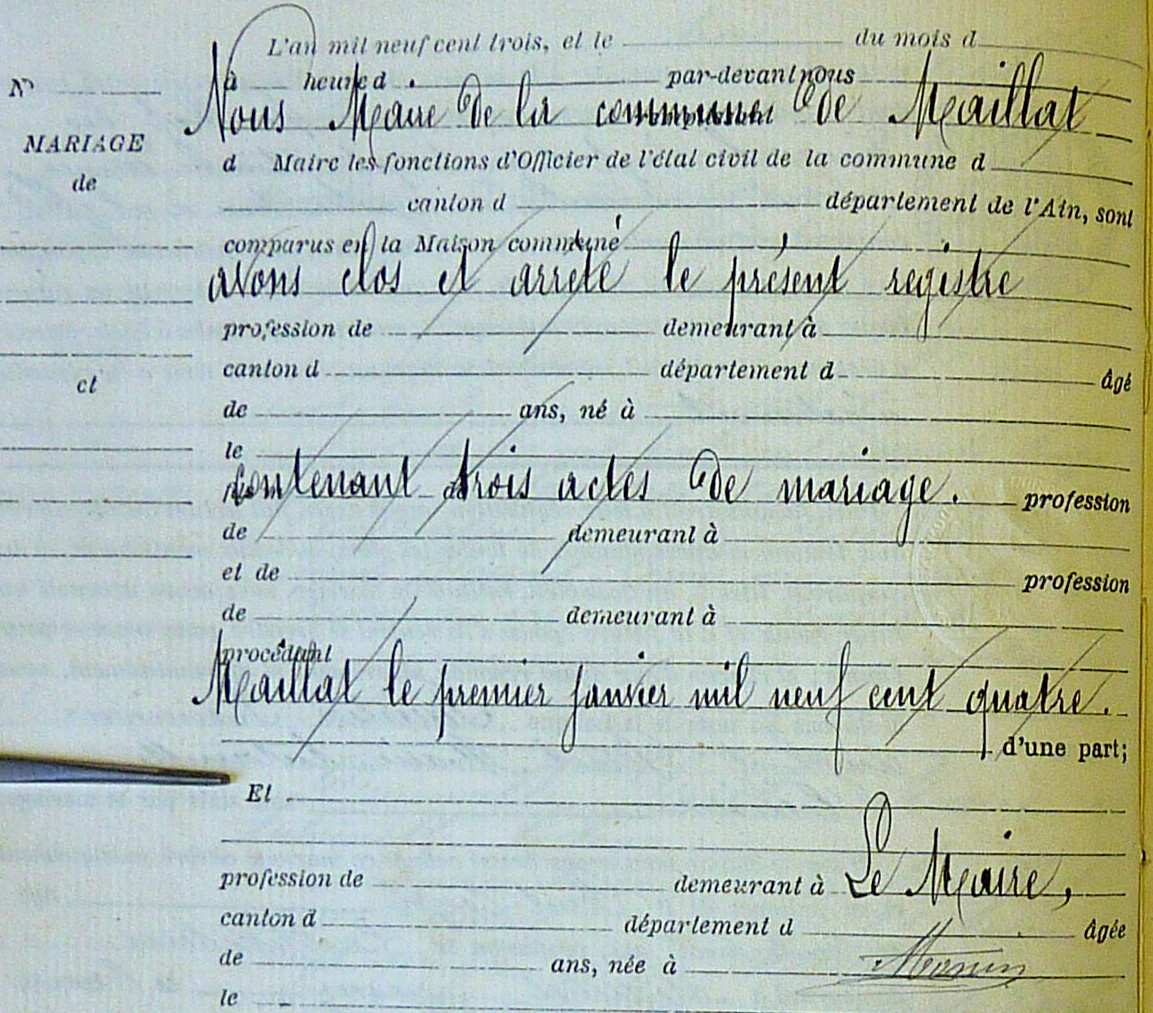 L'an mil neuf cent trois, et le du mois d
N°
à heure d par-devant nous
Nous Maire de la commune de Maillat
MARIAGE
d Maire les fonctions d'Officier de l'état civil de la commune d
de
canton d département de l'Ain, sont
comparus en la Maison commune
avons clos et arrêté le présent registre
profession de demeurant à
canton d département d âgé
et
de ans, né à
le
contenant trois actes de mariage. profession
de demeurant à
et de profession
de demeurant à
procédant
Maillat le premier janvier mil neuf cent quatre.
d'une part;
Et
Le Maire,
profession de demeurant à
canton d département d âgée
de ans, née à
le